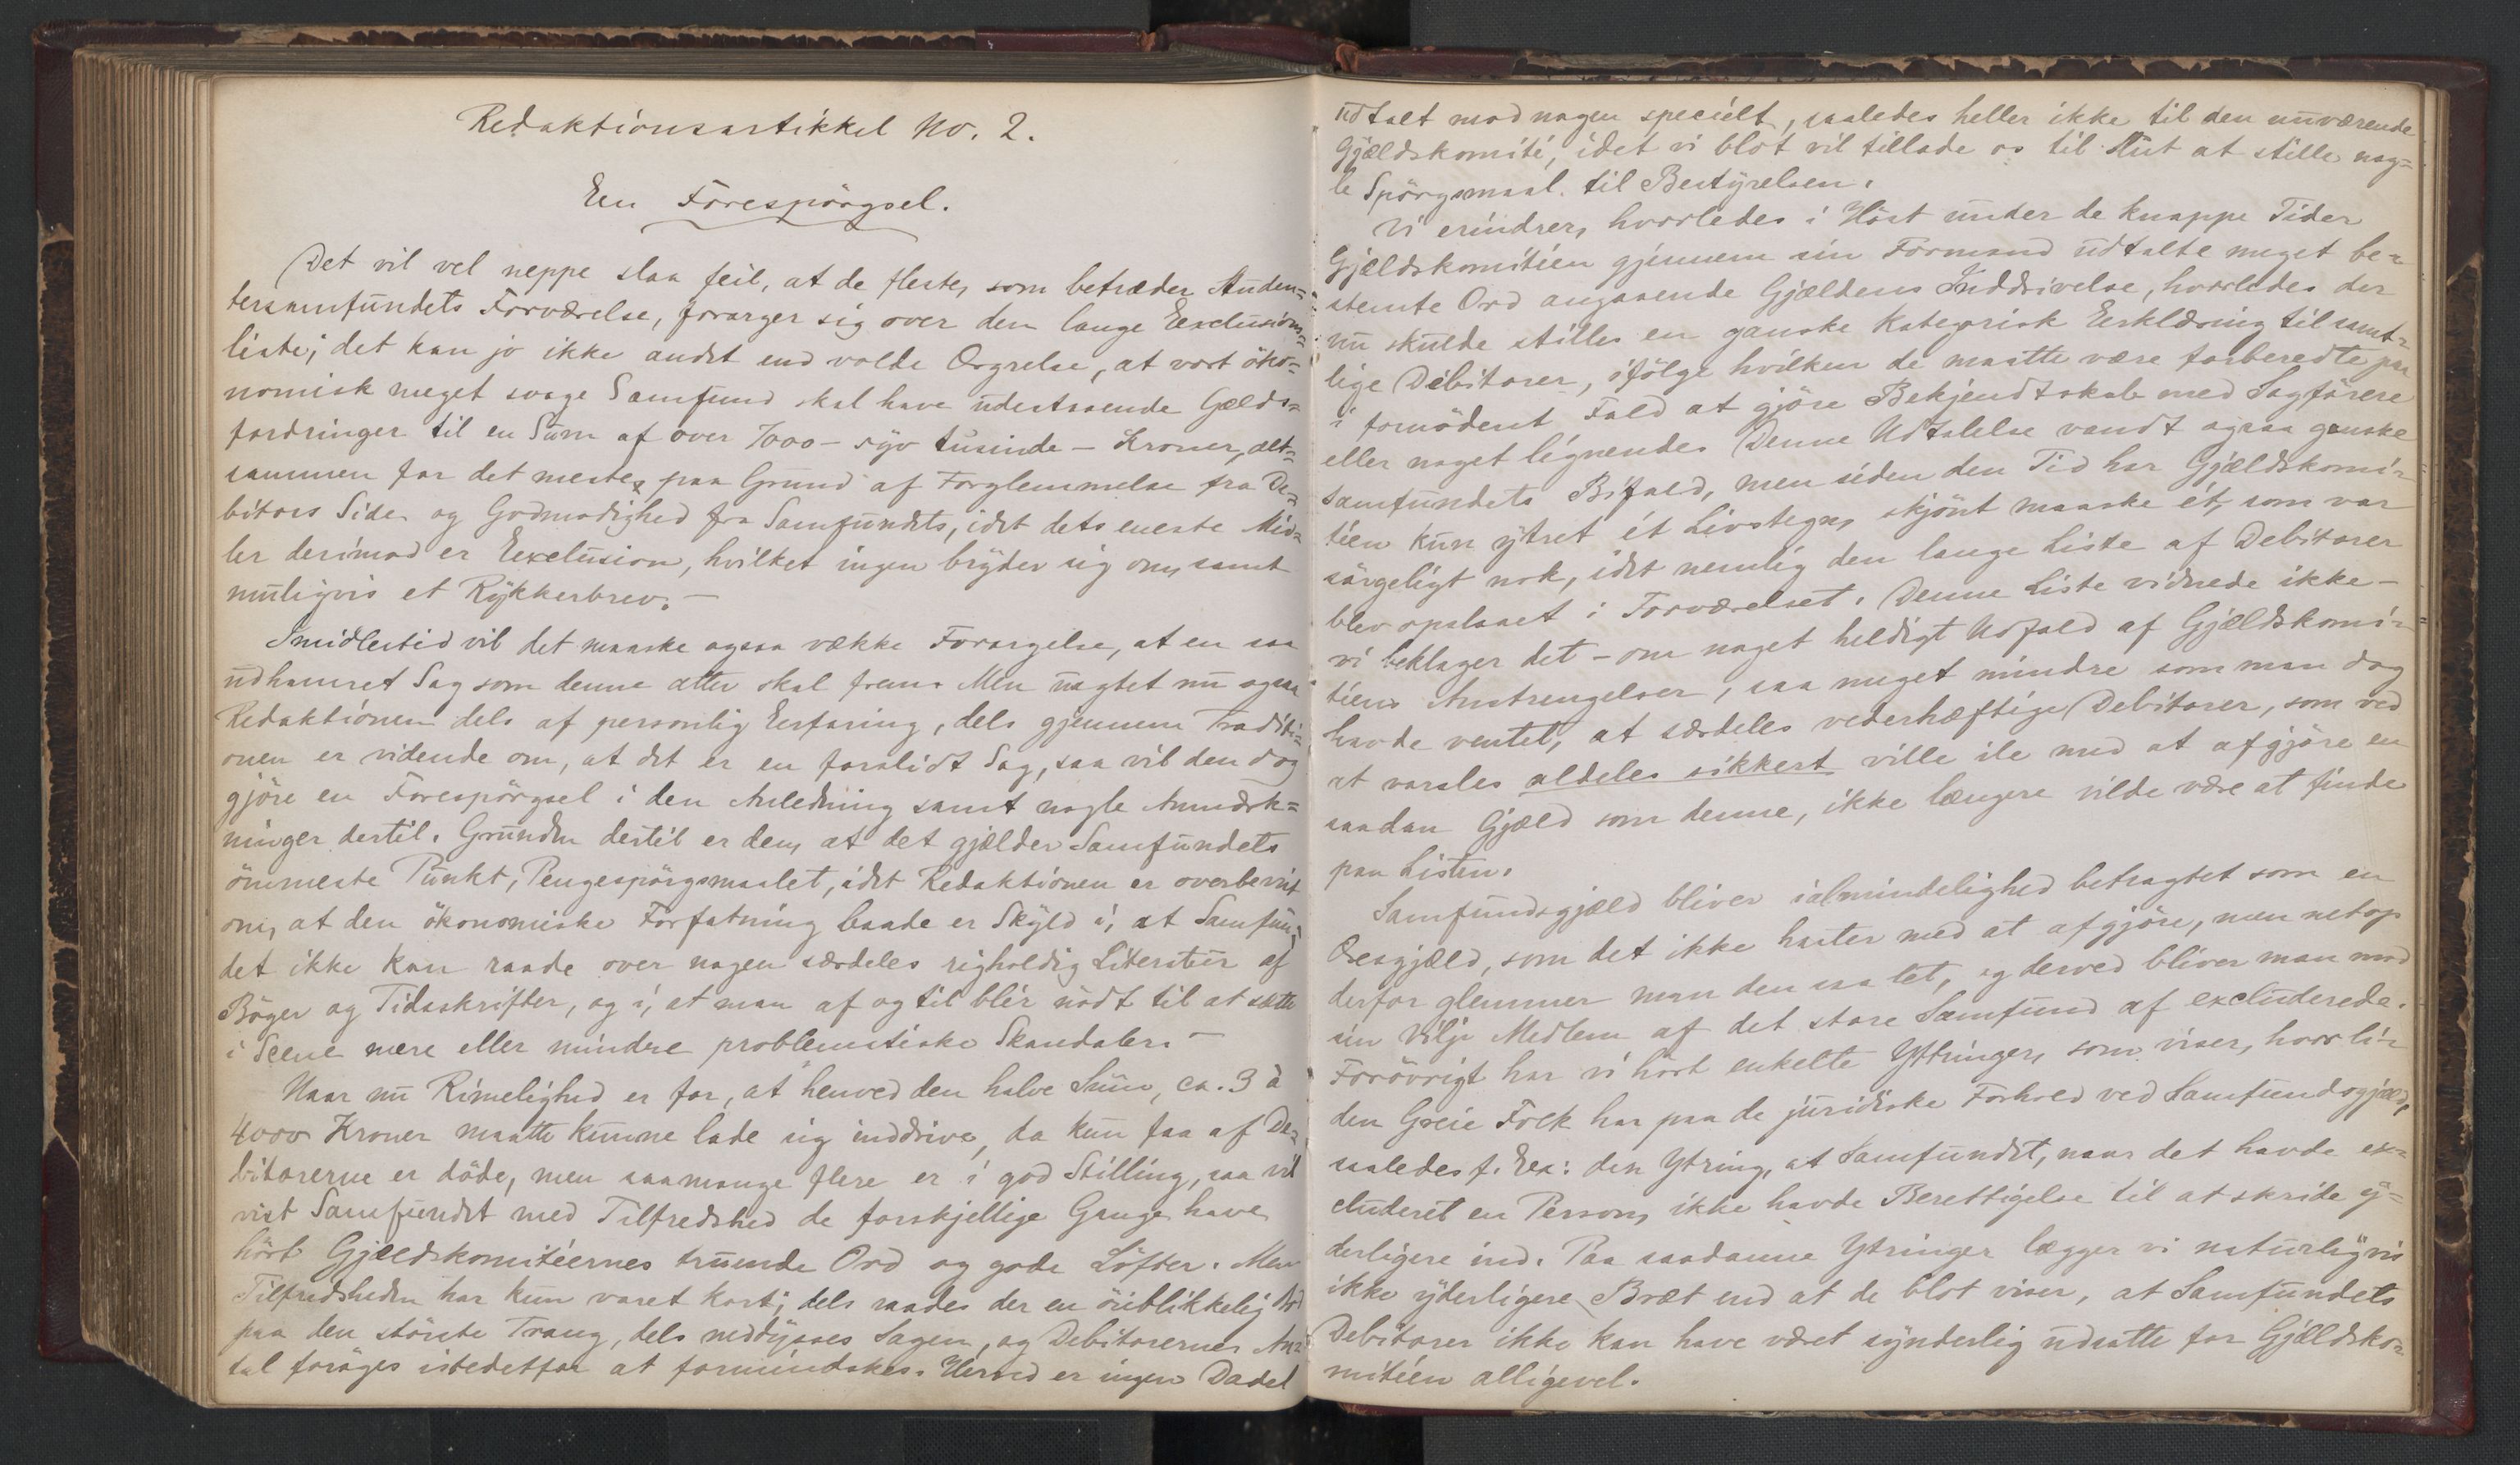 Redaktionsartikkel No. 2.
En Forespörgsel.
Det vil vel neppe slaa feil, at de fleste, som betræder Studen-
tersamfundets Forværelse, forarger sig over den lange Exclusions-
liste; det kan jo ikke andet end volde Ærgrelse, at vort öko-
nomisk meget svage Samfund skal have udestaaende Gælds-
fordringer til en Sum af over 7000 - syv tusinde - Kroner, alt-
sammen for det meste, paa Grund af Forglemmelse fra De-
bitors Side og Godmodighed fra Samfundets, idet dets eneste Mid-
ler derimod er Exclusion, hvilket ingen bryder sig om, samt
muligvis et Rykkerbrev. -
Imidlertid vil det maaske ogsaa vække Forargelse, at en saa
udhamret Sag som denne atter skal frem. Men uagtet nu ogsaa
Redaktionen dels af personlig Erfaring, dels gjennem Traditi-
onen er vidende om, at det er en forslidt Sag, saa vil den dog
gjöre en Forespörgsel i den Anledning samt nogle Anmærk-
ninger dertil. Grunden dertil er den, at det gjælder Samfundets
ömmeste Punkt, Pengespörgsmaalet, idet Redaktionen er overbevist
om, at den ökonomiske Forfatning baade er Skyld i, at Samfun-
det ikke kan raade over nogen særdeles righoldig Literatur af
Böger og Tidsskrifter, og i, at man af og til blir nödt til at sætte
i Scene mere eller mindre problematiske Skandaler. -
Naar nu Rimelighed er for, at henved den halve Sum, ca. 3 à
4000 Kroner maatte kunne lade sig inddrive, da kun faa af De-
bitorerne er döde, men saamange flere er i god Stilling, saa vil
vist Samfundet med Tilfredshed de forskjellige Gange have
hört Gjældskomitéernes truende Ord og gode Löfter. Men
Tilfredsheden har kun varet kort; dels raades der en öieblikkelig Bod
paa den störste Trang, dels neddysses Sagen, og Debitorernes An-
tal foröges istedetfor at formindskes. Herved er ingen Dadel
udtalt mod nogen specielt, saaledes heller ikke til den nuværende
Gjældskomité, idet vi blot vil tillade os til Slut at stille nog-
le Spörgsmaal til Bestyrelsen.
Vi erindrer, hvorledes i Höst under de knappe Tider
Gjældskomitéen gjennem sin Formand udtalte meget be-
stemte Ord angaaende Gjældens Inddrivelse, hvorledes der
nu skulde stilles en ganske kategorisk Erklæring til samt-
lige Debitorer, ifölge hvilken de maatte være forberedte paa
i fornödent Fald at gjöre Bekjendtskab med Sagförere
eller noget lignende. Denne Udtalelse vandt ogsaa ganske
Samfundets Bifald, men siden den Tid har Gjældskomi-
téen kun ytret ét Livstegn, skjönt maaske ét, som var
sörgeligt nok, idet nemlig den lange Liste af Debitorer
blev opslaaet i Forværelset. Denne Liste vidnede ikke -
vi beklager det - om noget heldigt Udfald af Gjældskomi-
téens Anstrengelser, saa meget mindre som man dog
havde ventet, at særdeles vederhæftige Debitorer, som ved
at varsles aldeles sikkert ville ile med at afgjöre en
saadan Gjæld som denne, ikke længere vilde være at finde
paa Listen.
Samfundsgjæld bliver ialmindelighed betragtet som en
Æresgjæld, som det ikke haster med at afgjöre, men netop
derfor glemmer man den saa let, og derved bliver man mod
sin Vilje Medlem af det store Samfund af excluderede.
Forövrigt har vi hört enkelte Ytringer, som viser, hvor li-
den Greie Folk har paa de juridiske Forhold ved Samfundsgjæld,
saaledes f. Ex: den Ytring, at Samfundet, naar det havde ex-
cluderet en Person, ikke havde Berettigelse til at skride y-
derligere ind. Paa saadanne Ytringer lægger vi naturligvis
ikke yderligere Bræt end at de blot viser, at Samfundets
Debitorer ikke kan have været synderlig udsatte for Gjældsko-
mitéen alligevel.